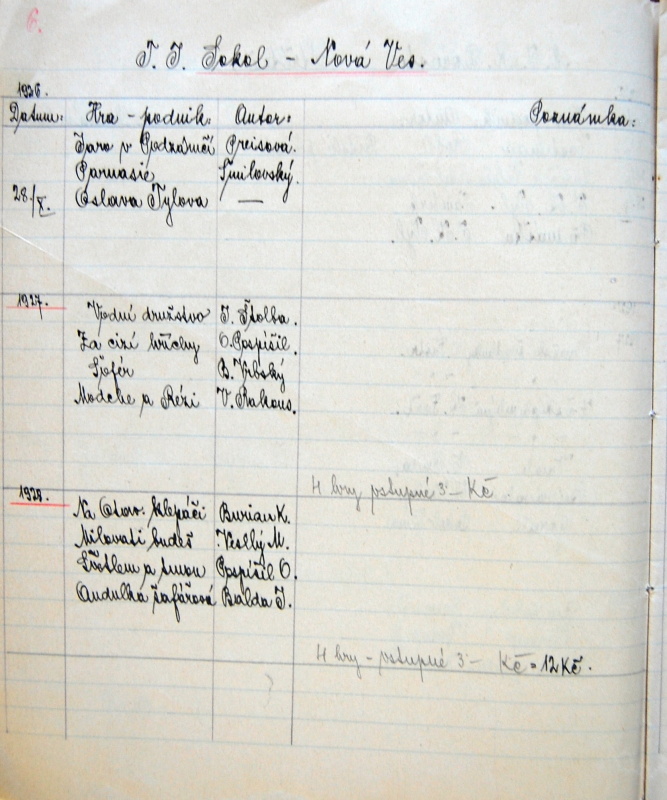 6.
T. J. Sokol - Nová Ves.
1926.
Datum: Hra - podnik: Autor: Poznámka:
Jaro v Podzámčí Preisová.
Parnasie Šmilovský.
28./X. Oslava Tylova —
1927.
Vodní družstvo J. Štolba.
Za cizí hříchy O. Pospíšil.
Šofér B. Vrbský
Modche a Rézi V. Rakous.
4 hry vstupné 3·– Kč
1928.
Na Otav: klepáči Burian K.
Milovati budeš Veselý M.
Světlem a tmou Pospíšil O.
Andulka šafářová Balda J.
4 hry – vstupné 3·– Kč = 12 Kč.